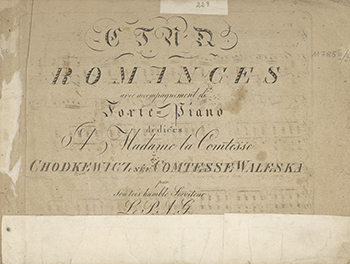 223
CINQ
ROMANCES
avec accompagniment de
Forte-Piano
dediées
A Madame la Comtesse
CHODKEWICZ née COMTESSE WALESKA
par
Son très humble Serviteur
L. P. A. G.